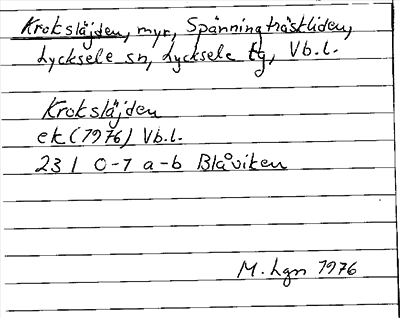 Kroksläjden, myr, Spänningträskliden,
Lycksele sn, Lycksele tg, Vb.l.
Kroksläjden
ek (1976) Vb.l.
23 I 0-1 a-b Blåviken
M. Lgn 1976